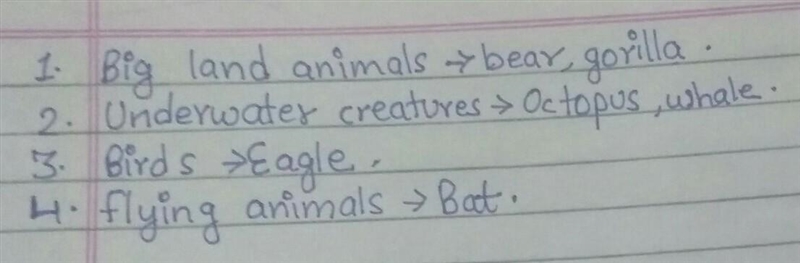 1. Big land animals → bear, gorilla.
2. Underwater creatures → Octopus, whale.
3. Birds → Eagle.
4. flying animals → Bat.